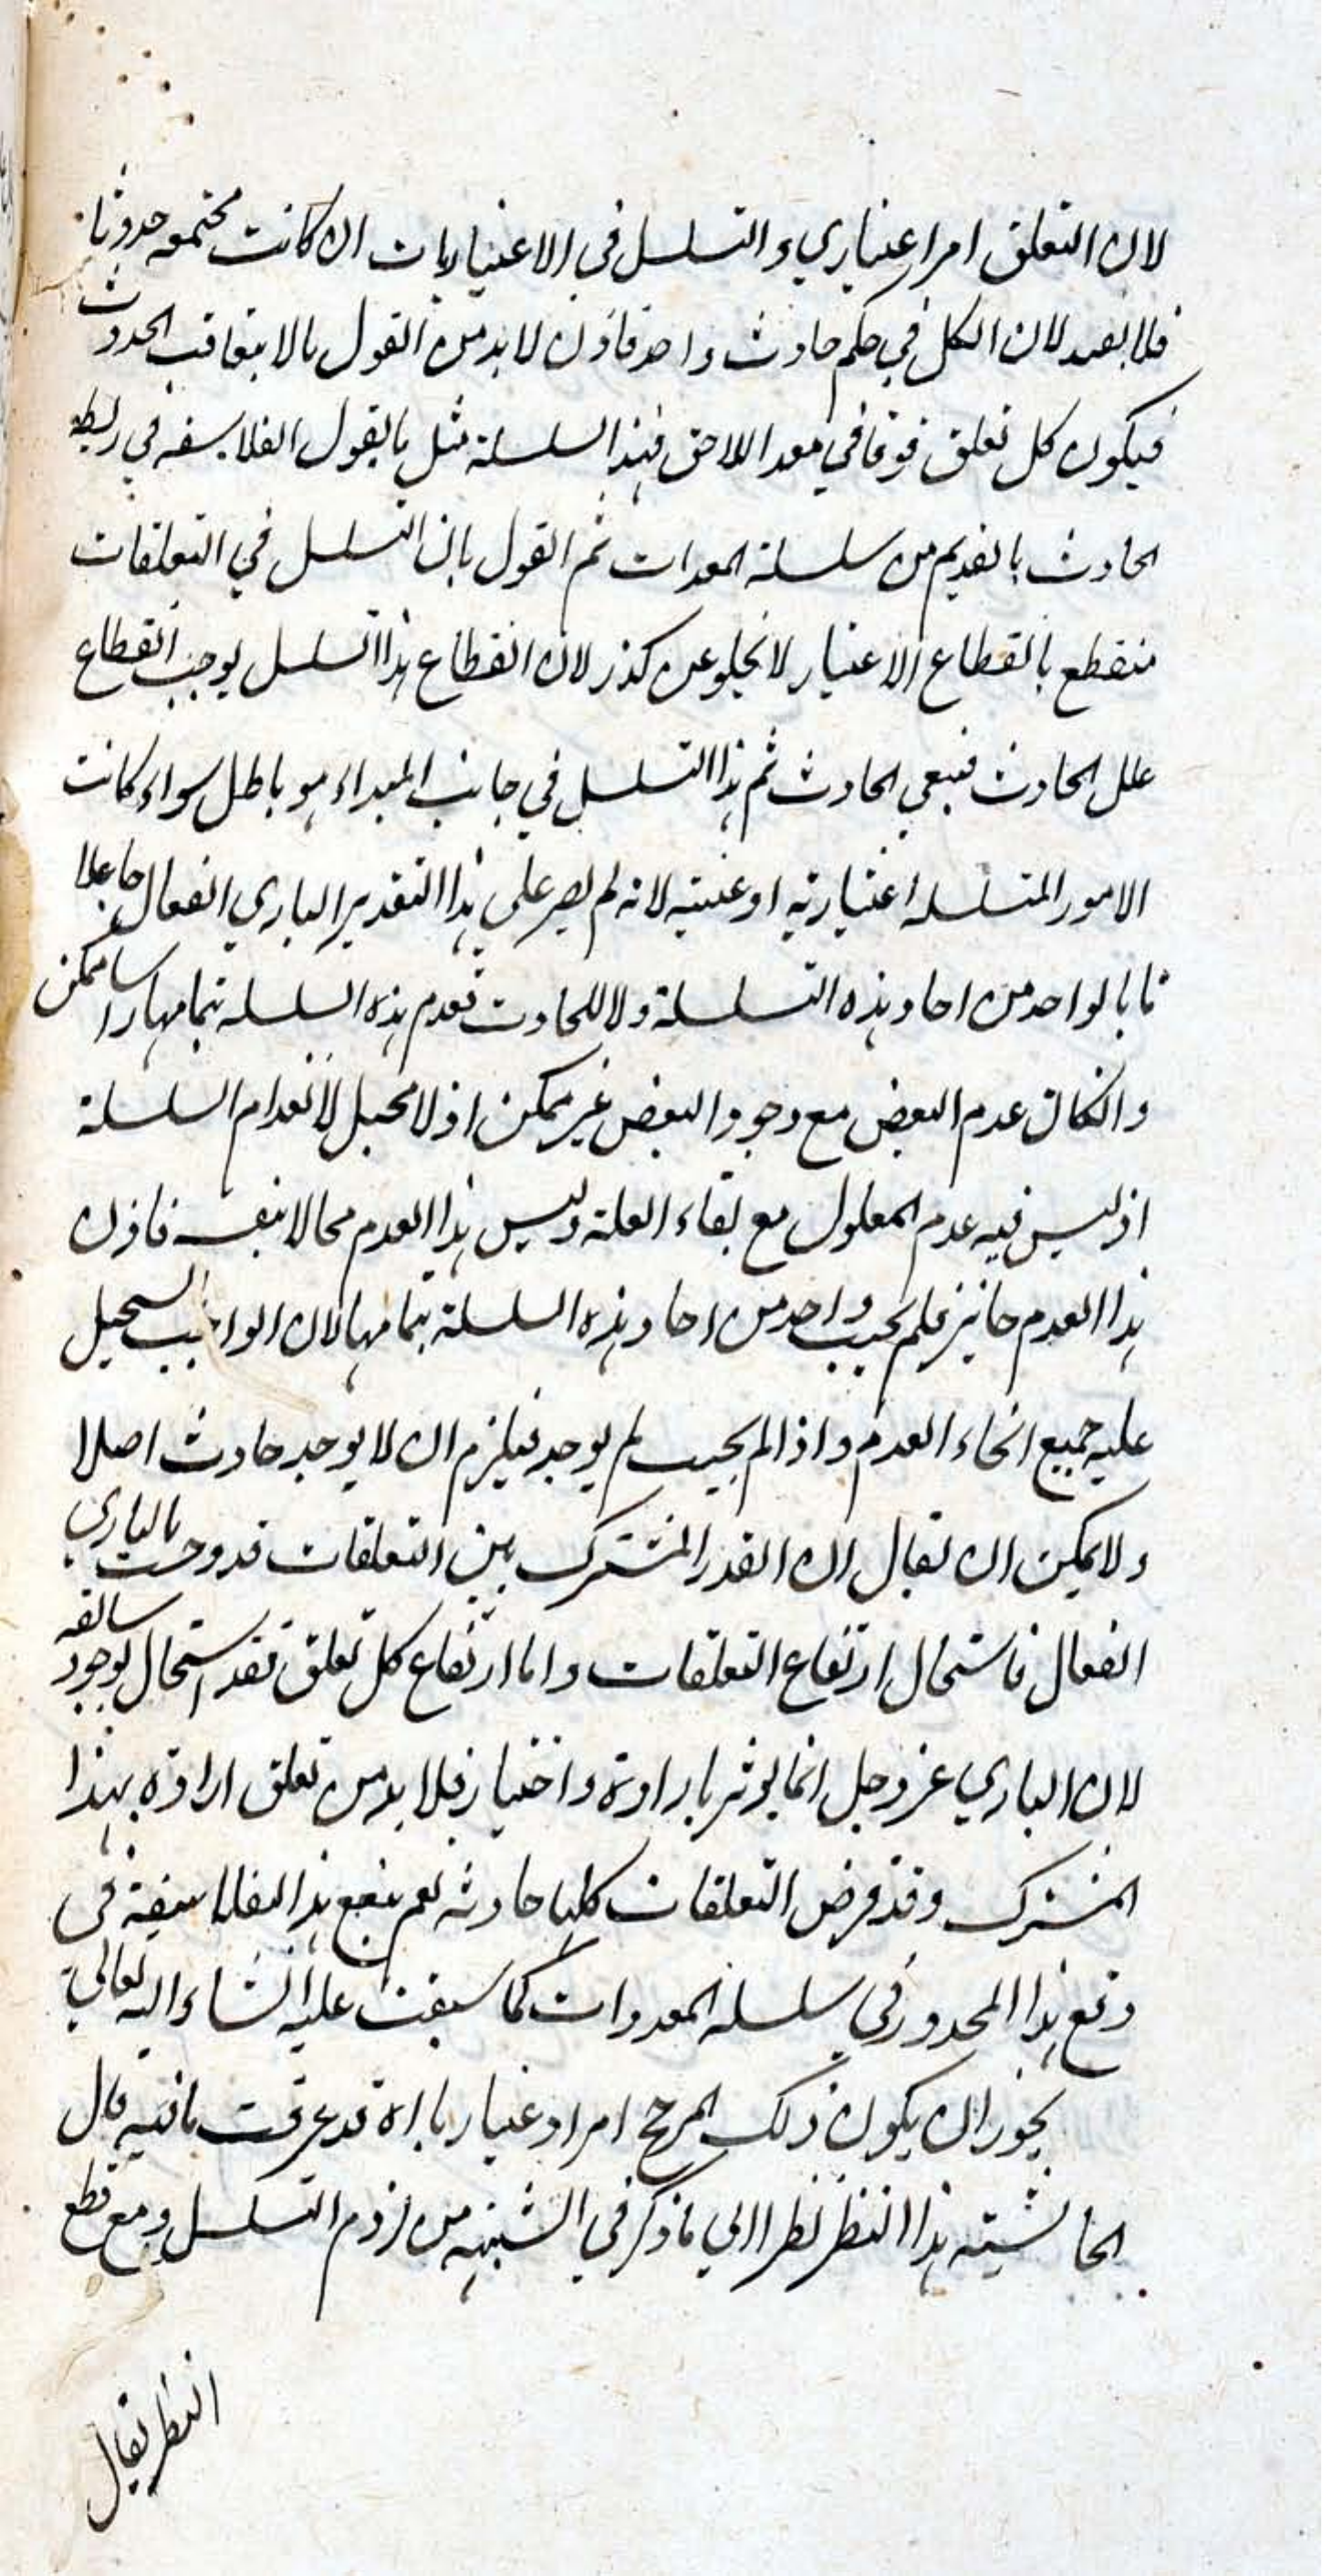 لان التعلق امر اعتباري والتسلسل في الاعتباريات ان كانت مجتمعه حدوثا
فلا بعيد لان الكل في حكم حادث واحد فاذن لابد من القول بالا بتعاقب الحدوث
فيكون كل تعلق فوقاني معد اللاحق فهذا السلسلة مثل ما يقول الفلاسفه في ربط
الحادث بالقديم من سلسلة المعدات ثم القول بان التسلسل في التعلقات
منقطع بانقطاع الاعتبار لا يخلو عن كدر لان انقطاع هذا التسلسل يوجب انقطاع
علل الحادث فيبقي الحادث ثم هذا التسلسل في جانب المبداء هو باطل سواء كانت
الامور المتسلسله اعتباريه او عينيه لانه لم يصر علي هذا التقدير الباري الفعال جاعلا
تا بالواحد من احاد هذه السلسلة ولا للحادث فعدم هذه السلسله بتمامها راسا ممكن
وان كان عدم البعض مع وجود البعض غير ممكن اذ لا محيل لانعدام السلسلة
اذ ليس فيه عدم المعلول مع بقاء العلة وليس هذا العدم محالا بنفسه فاذن
هذا العدم جائز فلم يجب واحد من احاد هذه السلسلة بتمامها لان الواجب يستحيل
عليه جميع انحاء العدم واذا لم يجب لم يوجد فيلزم ان لا يوجد حادث اصلا
ولا يمكن ان يقال ان القدر المشترك بين التعلقات قد وجبت بالباري
الفعال فاستحال ارتفاع التعلقات واما ارتفاع كل تعلق فقد استحال لوجود سابقه
لان الباري عز وجل انما يوثر بارادة واختيار فلا بد من تعلق ارادة بهذا
المشترك وقد فرض التعلقات كلها حادثه نعم ينفع هذا الفلاسفة في
دفع هذا المحذور في سلسله المعدوات كما سيقف عليه انشاء الله تعالي
يجوز ان يكون ذلك المرجح امرا اعتباريا اه قد عرفت ما فيه قال
الحاشيته هذا النظر نظرا الي ما ذكر في الشبهه من لزوم التسلسل ومع قطع
النظر يقال